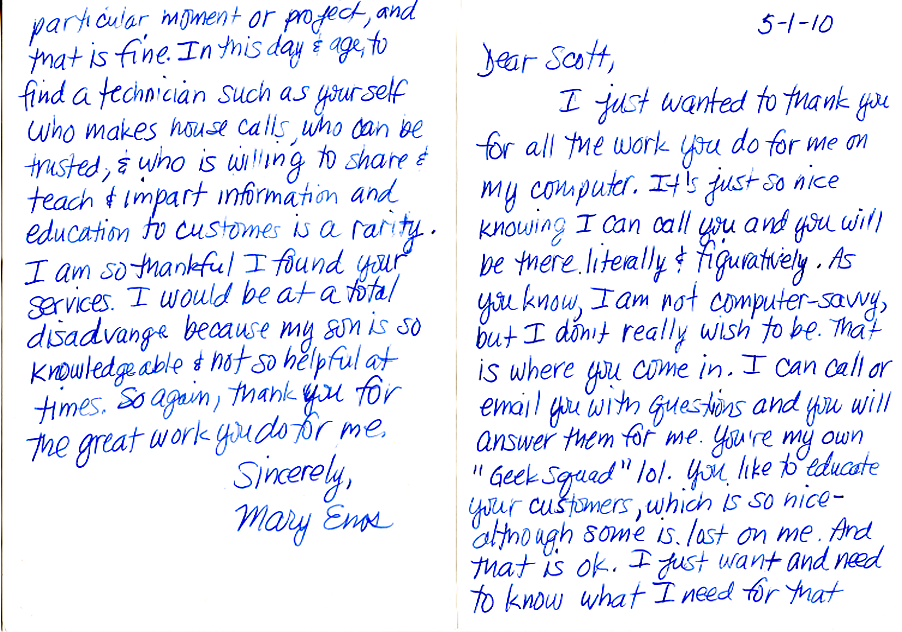 5-1-10
Dear Scott,
I just wanted to thank you
for all the work you do for me on
my computer. It's just so nice
knowing I can call you and you will
be there literally & figuratively. As
you know, I am not computer-savvy,
but I don't really wish to be. That
is where you come in. I can call or
email you with questions and you will
answer them for me. You're my own
"Geek Squad" lol. You like to educate
your customers, which is so nice-
although some is lost on me. And
that is ok. I just want and need
to know what I need for that
particular moment or project, and
that is fine. In this day & age, to
find a technician such as yourself
who makes house calls, who can be
trusted, & who is willing to share &
teach & impart information and
education to customes is a rarity.
I am so thankful I found your
services. I would be at a total
disadvange because my son is so
knowledgeable & not so helpful at
times. So again, thank you for
the great work you do for me.
Sincerely,
Mary Enos